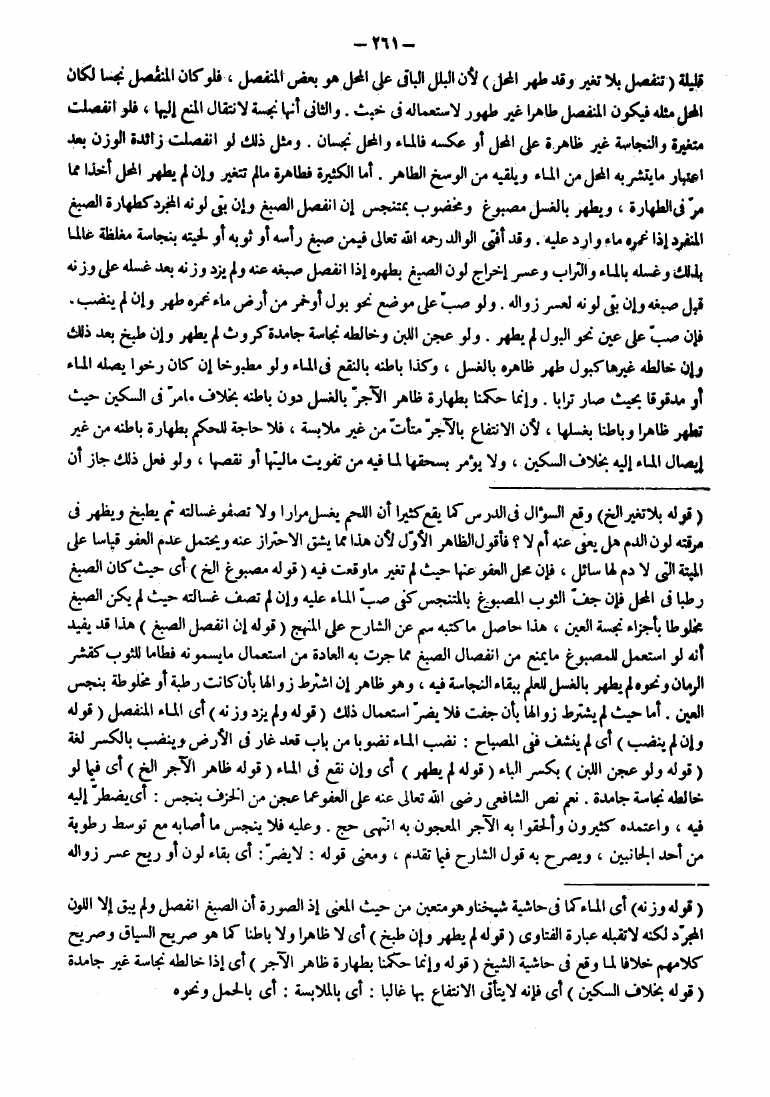 – ٢٦١ –
قليلة ( تنفصل بلا تغير وقد طهر المحل ) لأن البلل الباقى على المحل هو بعض المنفصل ، فلو كان المنفصل نجسا لكان
المحل مثله فيكون المنفصل طاهرا غير طهور لاستعماله فى خبث . والثانى أنها نجسة لانتقال المنع إليها ، فلو انفصلت
متغيرة والنجاسة غير ظاهرة على المحل أو عكسه فالماء والمحل نجسان . ومثل ذلك لو انفصلت زائدة الوزن بعد
اعتبار مايتشربه المحل من الماء ويلقيه من الوسخ الطاهر . أما الكثيرة فطاهرة مالم تتغير وإن لم يطهر المحل أخذا مما
مرّ فى الطهارة ، ويطهر بالغسل مصبوغ ومخضوب بمتنجس إن انفصل الصبغ وإن بقى لونه المجرد كطهارة الصبغ
المنفرد إذا غمره ماء وارد عليه . وقد أفتى الوالد رحمه الله تعالى فيمن صبغ رأسه أو ثوبه أو لحيته بنجاسة مغلظة عالما
بذلك وغسله بالماء والتراب وعسر إخراج لون الصبغ بطهره إذا انفصل صبغه عنه ولم يزد وزنه بعد غسله على وزنه
قبل صبغه وإن بقى لونه لعسر زواله . ولو صبّ على موضع نحو بول أو خمر من أرض ماء غمره طهر وإن لم ينضب .
فإن صبّ على عين نحو البول لم يطهر . ولو عجن اللبن وخالطه نجاسة جامدة كروث لم يطهر وإن طبخ بعد ذلك
وإن خالطه غيرها كبول طهر ظاهره بالغسل ، وكذا باطنه بالنقع فى الماء ولو مطبوخا إن كان رخوا يصله الماء
أو مدقوقا بحيث صار ترابا . وإنما حكمنا بطهارة ظاهر الآجرّ بالغسل دون باطنه بخلاف مامرّ فى السكين حيث
تطهر ظاهرا وباطنا بغسلها ، لأن الانتفاع بالآجرّ متأتّ من غير ملابسة ، فلا حاجة للحكم بطهارة باطنه من غير
إيصال الماء إليه بخلاف السكين ، ولا يؤمر بسحقها لما فيه من تفويت ماليتها أو نقصها ، ولو فعل ذلك جاز أن
( قوله بلا تغير الخ) وقع السؤال فى الدرس كما يقع كثيرا أن اللحم يغسل مرارا ولا تصفو غسالته ثم يطبخ ويظهر فى
مرقته لون الدم هل يعفى عنه أم لا ؟ فأقول الظاهر الأوّل لأن هذا مما يشق الاحتراز عنه ويحتمل عدم العفو قياسا على
الميتة التى لا دم لها سائل ، فإن محل العفو عنها حيث لم تغير ما وقعت فيه ( قوله مصبوغ الخ ) أى حيث كان الصبغ
رطبا فى المحل فإن جفّ الثوب المصبوغ بالمتنجس كفى صبّ الماء عليه وإن لم تصف غسالته حيث لم يكن الصبغ
مخلوطا بأجزاء نجسة العين ، هذا حاصل ماكتبه سم عن الشارح على المنهج ( قوله إن انفصل الصبغ ) هذا قد يفيد
أنه لو استعمل للمصبوغ مايمنع من انفصال الصبغ مما جرت به العادة من استعمال مايسمونه فطاما للثوب كقشر
الرمان ونحوه لم يطهر بالغسل للعلم ببقاء النجاسة فيه ، وهو ظاهر إن اشترط زوالها بأن كانت رطبة أو مخلوطة بنجس
العين . أما حيث لم يشترط زوالها بأن جفت فلا يضرّ استعمال ذلك ( قوله ولم يزد وزنه ) أى الماء المنفصل ( قوله
وإن لم ينضب ) أى لم ينشف ففى المصباح : نضب الماء نضوبا من باب قعد غار فى الأرض وينضب بالكسر لغة
( قوله ولو عجن اللبن ) بكسر الباء ( قوله لم يطهر ) أى وإن نقع فى الماء ( قوله ظاهر الآجر الخ ) أى فيما لو
خالطه نجاسة جامدة . نعم نص الشافعى رضى الله تعالى عنه على العفو عما عجن من الخزف بنجس : أى يضطرّ إليه
فيه ، واعتمده كثيرون وألحقوا به الآجر المعجون به انتهى حج . وعليه فلا ينجس ما أصابه مع توسط رطوبة
من أحد الجانبين ، ويصرح به قول الشارح فيما تقدم ، ومعنى قوله : لايضرّ : أى بقاء لون أو ريح عسر زواله
( قوله وزنه) أى الماء كما فى حاشية شيخنا وهو متعين من حيث المعنى إذ الصورة أن الصبغ انفصل ولم يبق إلا اللون
المجرّد لكنه لاتقبله عبارة الفتاوى ( قوله لم يطهر وإن طبخ ) أى لا ظاهرا ولا باطنا كما هو صريح السياق وصريح
كلامهم خلافا لما وقع فى حاشية الشيخ ( قوله وإنما حكمنا بطهارة ظاهر الآجر ) أى إذا خالطه نجاسة غير جامدة
( قوله بخلاف السكين ) أى فإنه لايتأتى الانتفاع بها غالبا : أى بالملابسة : أى بالحمل ونحوه